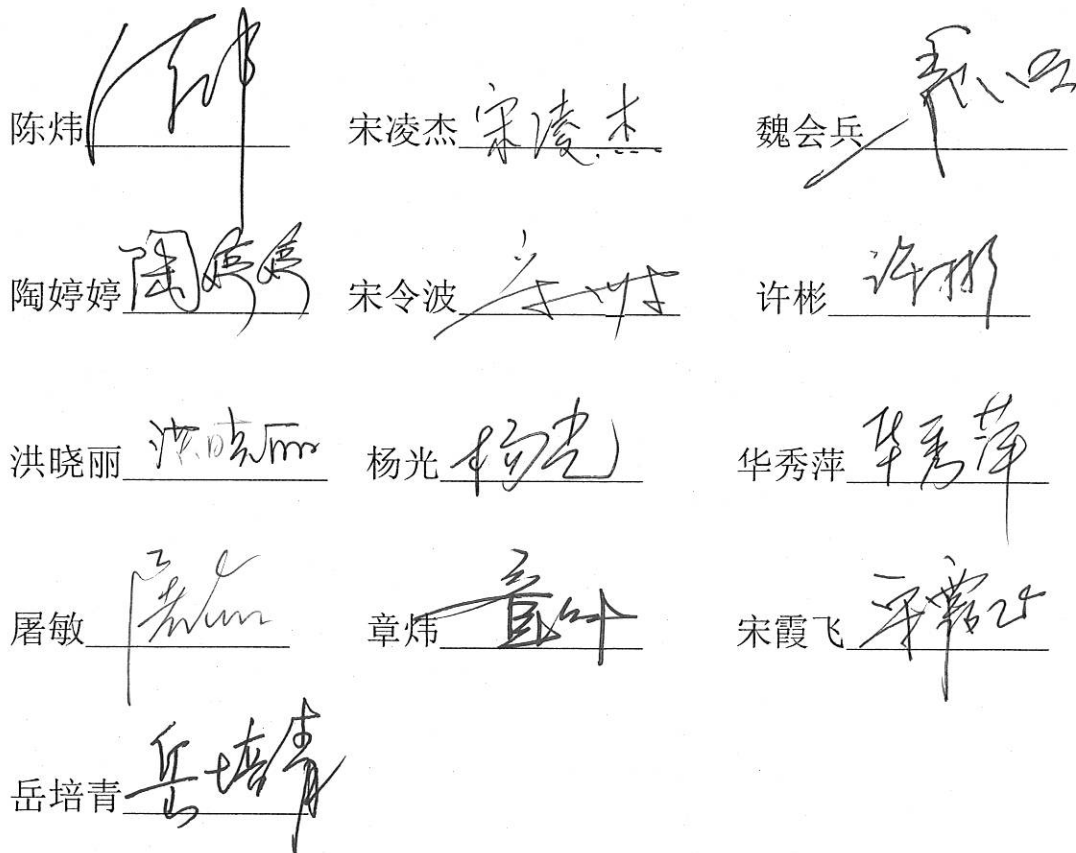 陈炜 宋凌杰 宋凌杰 魏会兵
陶婷婷 陶婷婷 宋令波 许彬 许彬
洪晓丽 洪晓丽 杨光 杨光 华秀萍 华秀萍
屠敏 章炜 章炜 宋霞飞 宋霞飞
岳培青 岳培青